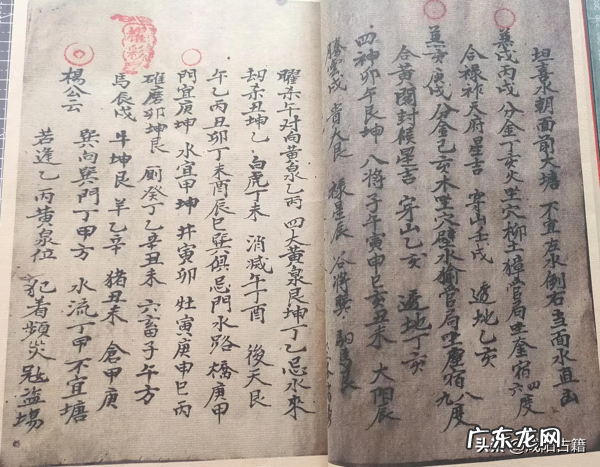 坦喜水朝面前大塘 不宜左水倒右立面水直出
分金丁亥火坐穴柳土獐管局坐奎宿六四度
合祿祚天府星吉 穿山壬戌 透地乙亥
庚戌 分金己亥木坐穴壁水貐管局坐宿九八度
合黃閣封候星吉 穿山乙亥 透地丁亥
四神卯午艮坤 八將子午寅申巳亥丑未 大陽辰
戌 貴人艮 祿星辰 谷將巽 馬艮
曜杀午对向黃泉乙丙 四大黃泉艮坤丁乙忌水來
刼杀丑坤乙 白虎丁未 消滅午丁酉 後天艮
午乙丙丑卯丁未酉辰巳巽俱忌門水路橋庚甲
門宜庚坤 水宜甲坤 井寅卯 灶寅庚申巳丙
碓磨卯坤艮 厠癸丁乙辛丑未 六畜子午方
馬辰戌 牛坤艮 羊乙辛 猪丑未 倉甲庚
楊公云 巽向巽門丁甲方 水流丁甲不宜塘
若逢乙丙黃泉位 犯着頻災冦盜場
广东龙网